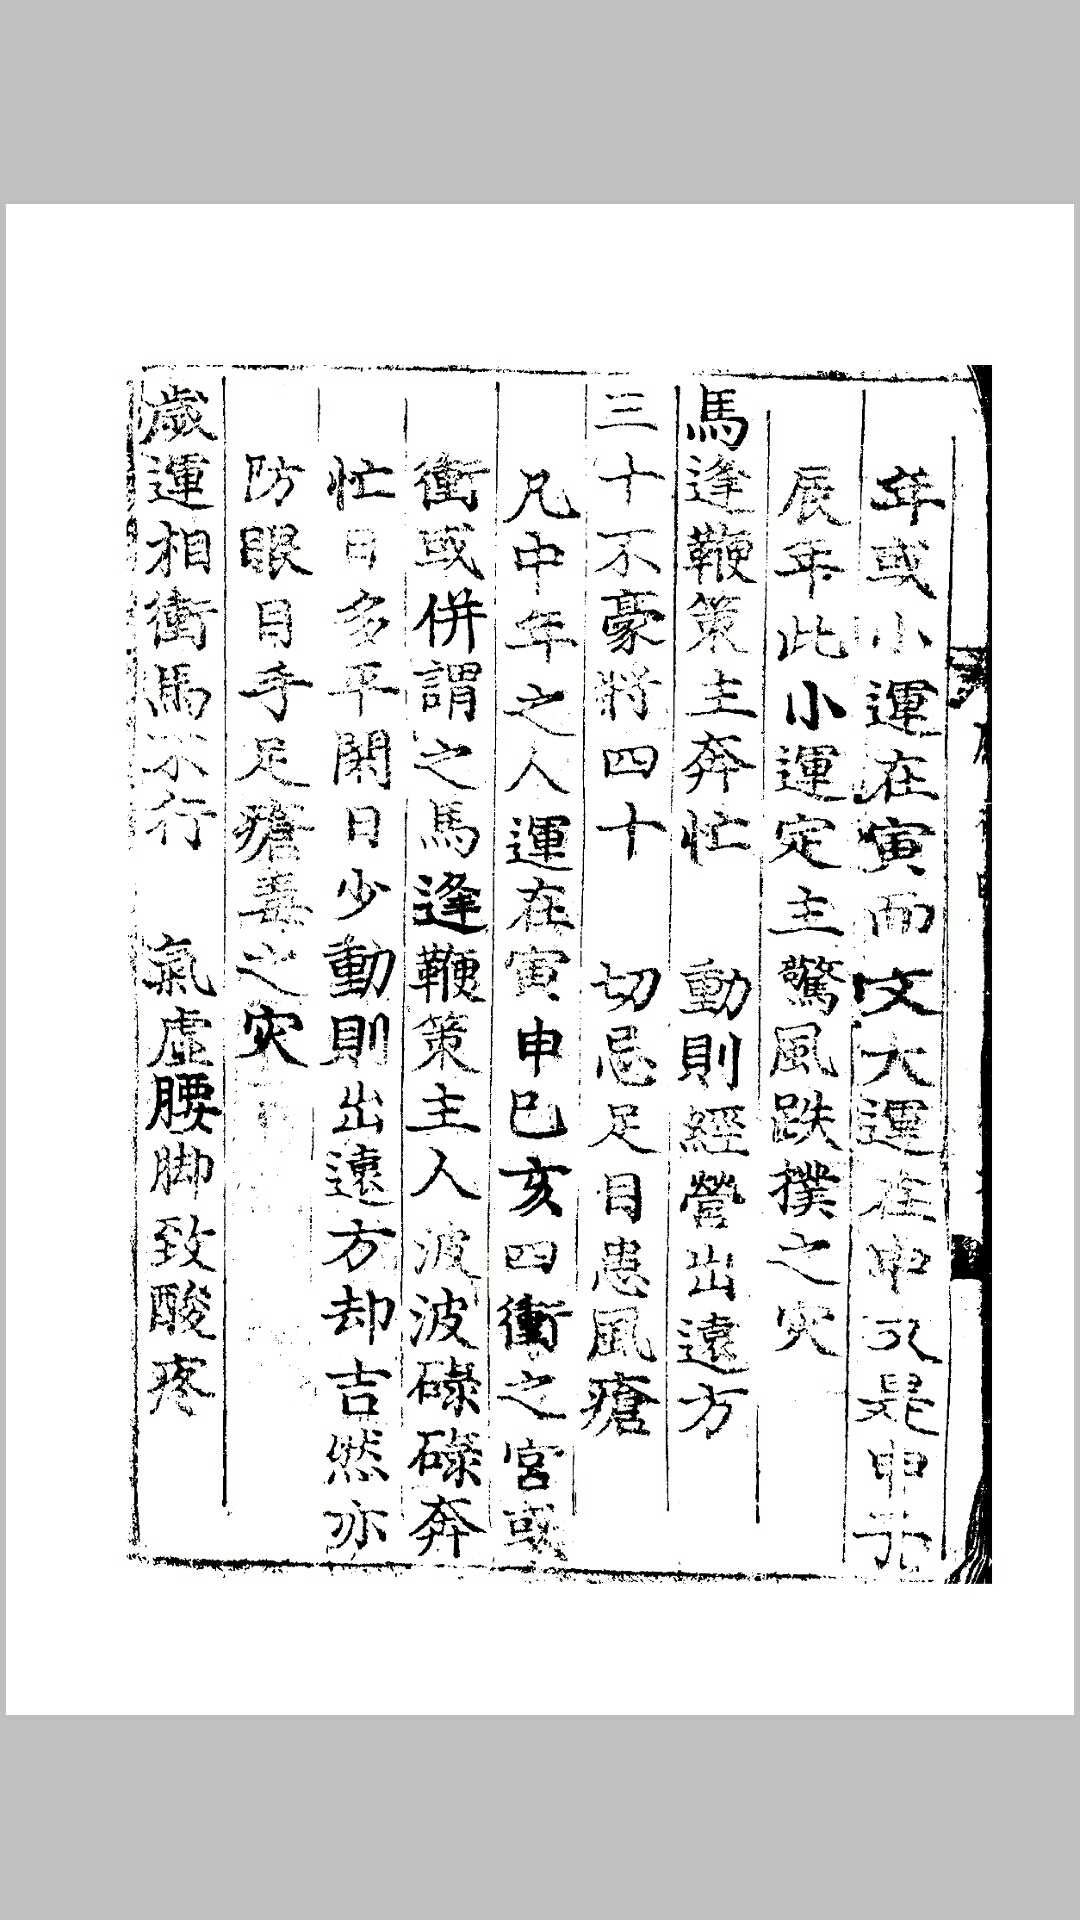 年或小運在寅而文大運在申又是申子
辰年此小運定主驚風跌撲之灾
馬逢鞭策主奔忙　動則經營出遠方
三十不豪將四十　切忌足目患風瘡
凡中年之人運在寅申巳亥四衝之宮或
衝或併謂之馬逢鞭策主人波波碌碌奔
忙日多平閑日少動則出遠方却吉然亦
防眼目手足瘡毒之灾
歲運相衝馬不行　氣虛腰脚致酸疼